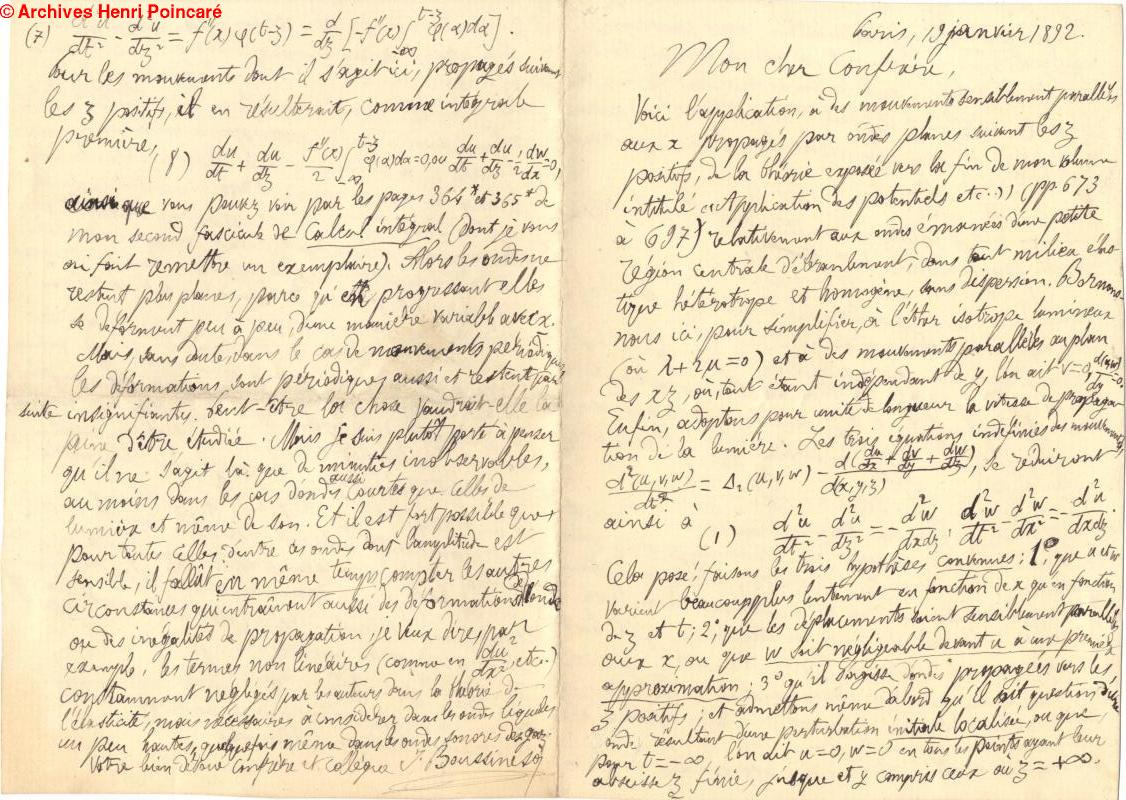 © Archives Henri Poincaré
Paris, 19 janvier 1892.
Mon cher Confrère,
Voici l'application, à des mouvements sensiblement parallèles
aux x propagés par ondes planes suivant les z
positifs, de la théorie exposée vers la fin de mon volume
intitulé « Application des potentiels etc. » (pp. 673
à 697) relativement aux ondes émanées d'une petite
région centrale d'ébranlement, dans tout milieu élas-
tique hétérotrope et homogène, sans dispersion. Bornons-
nous ici, pour simplifier, à l'éther isotrope lumineux
(où λ+2μ=0) et à des mouvements parallèles au plan
des xz, où, tout étant indépendant de y, l'on ait v=0, d(u,w)/dy=0.
Enfin, adoptons pour unité de longueur la vitesse de propaga-
tion de la lumière. Les trois équations indéfinies des mouvements,
d²(u,v,w)/dt² = Δ₂(u,v,w) − d(du/dx + dv/dy + dw/dz)/d(x,y,z), se réduiront
ainsi à (1) d²u/dt² − d²u/dz² = − d²w/dxdz, d²w/dt² − d²w/dx² = − d²u/dxdz.
Cela posé, faisons les trois hypothèses convenues: 1°, que u et w
varient beaucoup plus lentement en fonction de x qu'en fonction
de z et t; 2°, que les déplacements soient sensiblement parallèles
aux x, ou que w soit négligeable devant u à une première
approximation; 3° qu'il s'agisse d'ondes propagées vers les
z positifs; et admettons même d'abord qu'il soit question d'une
onde résultant d'une perturbation initiale localisée, ou que,
pour t=−∞, l'on ait u=0, w=0 en tous les points ayant leur
abscisse z finie, jusque et y compris ceux où z=+∞.
(7) d²u/dt² − d²u/dz² = f''(x) φ(t−z) = d/dz [−f''(x) ∫_{−∞}^{t−z} φ(α)dα].
Pour les mouvements dont il s'agit ici, propagés suivant
les z positifs, il en résulterait, comme intégrale
première, (8) du/dt + du/dz − f''(x)/2 ∫_{−∞}^{t−z} φ(α)dα=0, ou du/dt + du/dz − 1/2 dw/dx=0,
ainsi que vous pouvez voir par les pages 364* et 365* de
mon second fascicule de Calcul intégral (dont je vous
ai fait remettre un exemplaire). Alors les ondes ne
restent plus planes, parce qu'en progressant elles
se déforment peu à peu, d'une manière variable avec x.
Mais, sans doute, dans le cas de mouvements périodiques,
les déformations sont périodiques aussi et restent par
suite insignifiantes. Peut-être la chose vaudrait-elle la
peine d'être étudiée. Mais je suis plutôt porté à penser
qu'il ne s'agit là que de minuties inobservables,
au moins dans les cas d'ondes aussi courtes que celles de
lumière et même de son. Et il est fort possible que,
pour toutes celles d'entre ces ondes dont l'amplitude est
sensible, il fallût en même temps compter les autres
circonstances qui entraînent aussi des déformations de l'onde
ou des inégalités de propagation, je veux dire, par
exemple, les termes non linéaires (comme en du²/dx², etc.)
constamment négligés par les auteurs dans la théorie de
l'élasticité, mais nécessaires à considérer dans les ondes liquides
un peu hautes, quelquefois même dans les ondes sonores des gaz.
Votre bien dévoué confrère et collègue J. Boussinesq